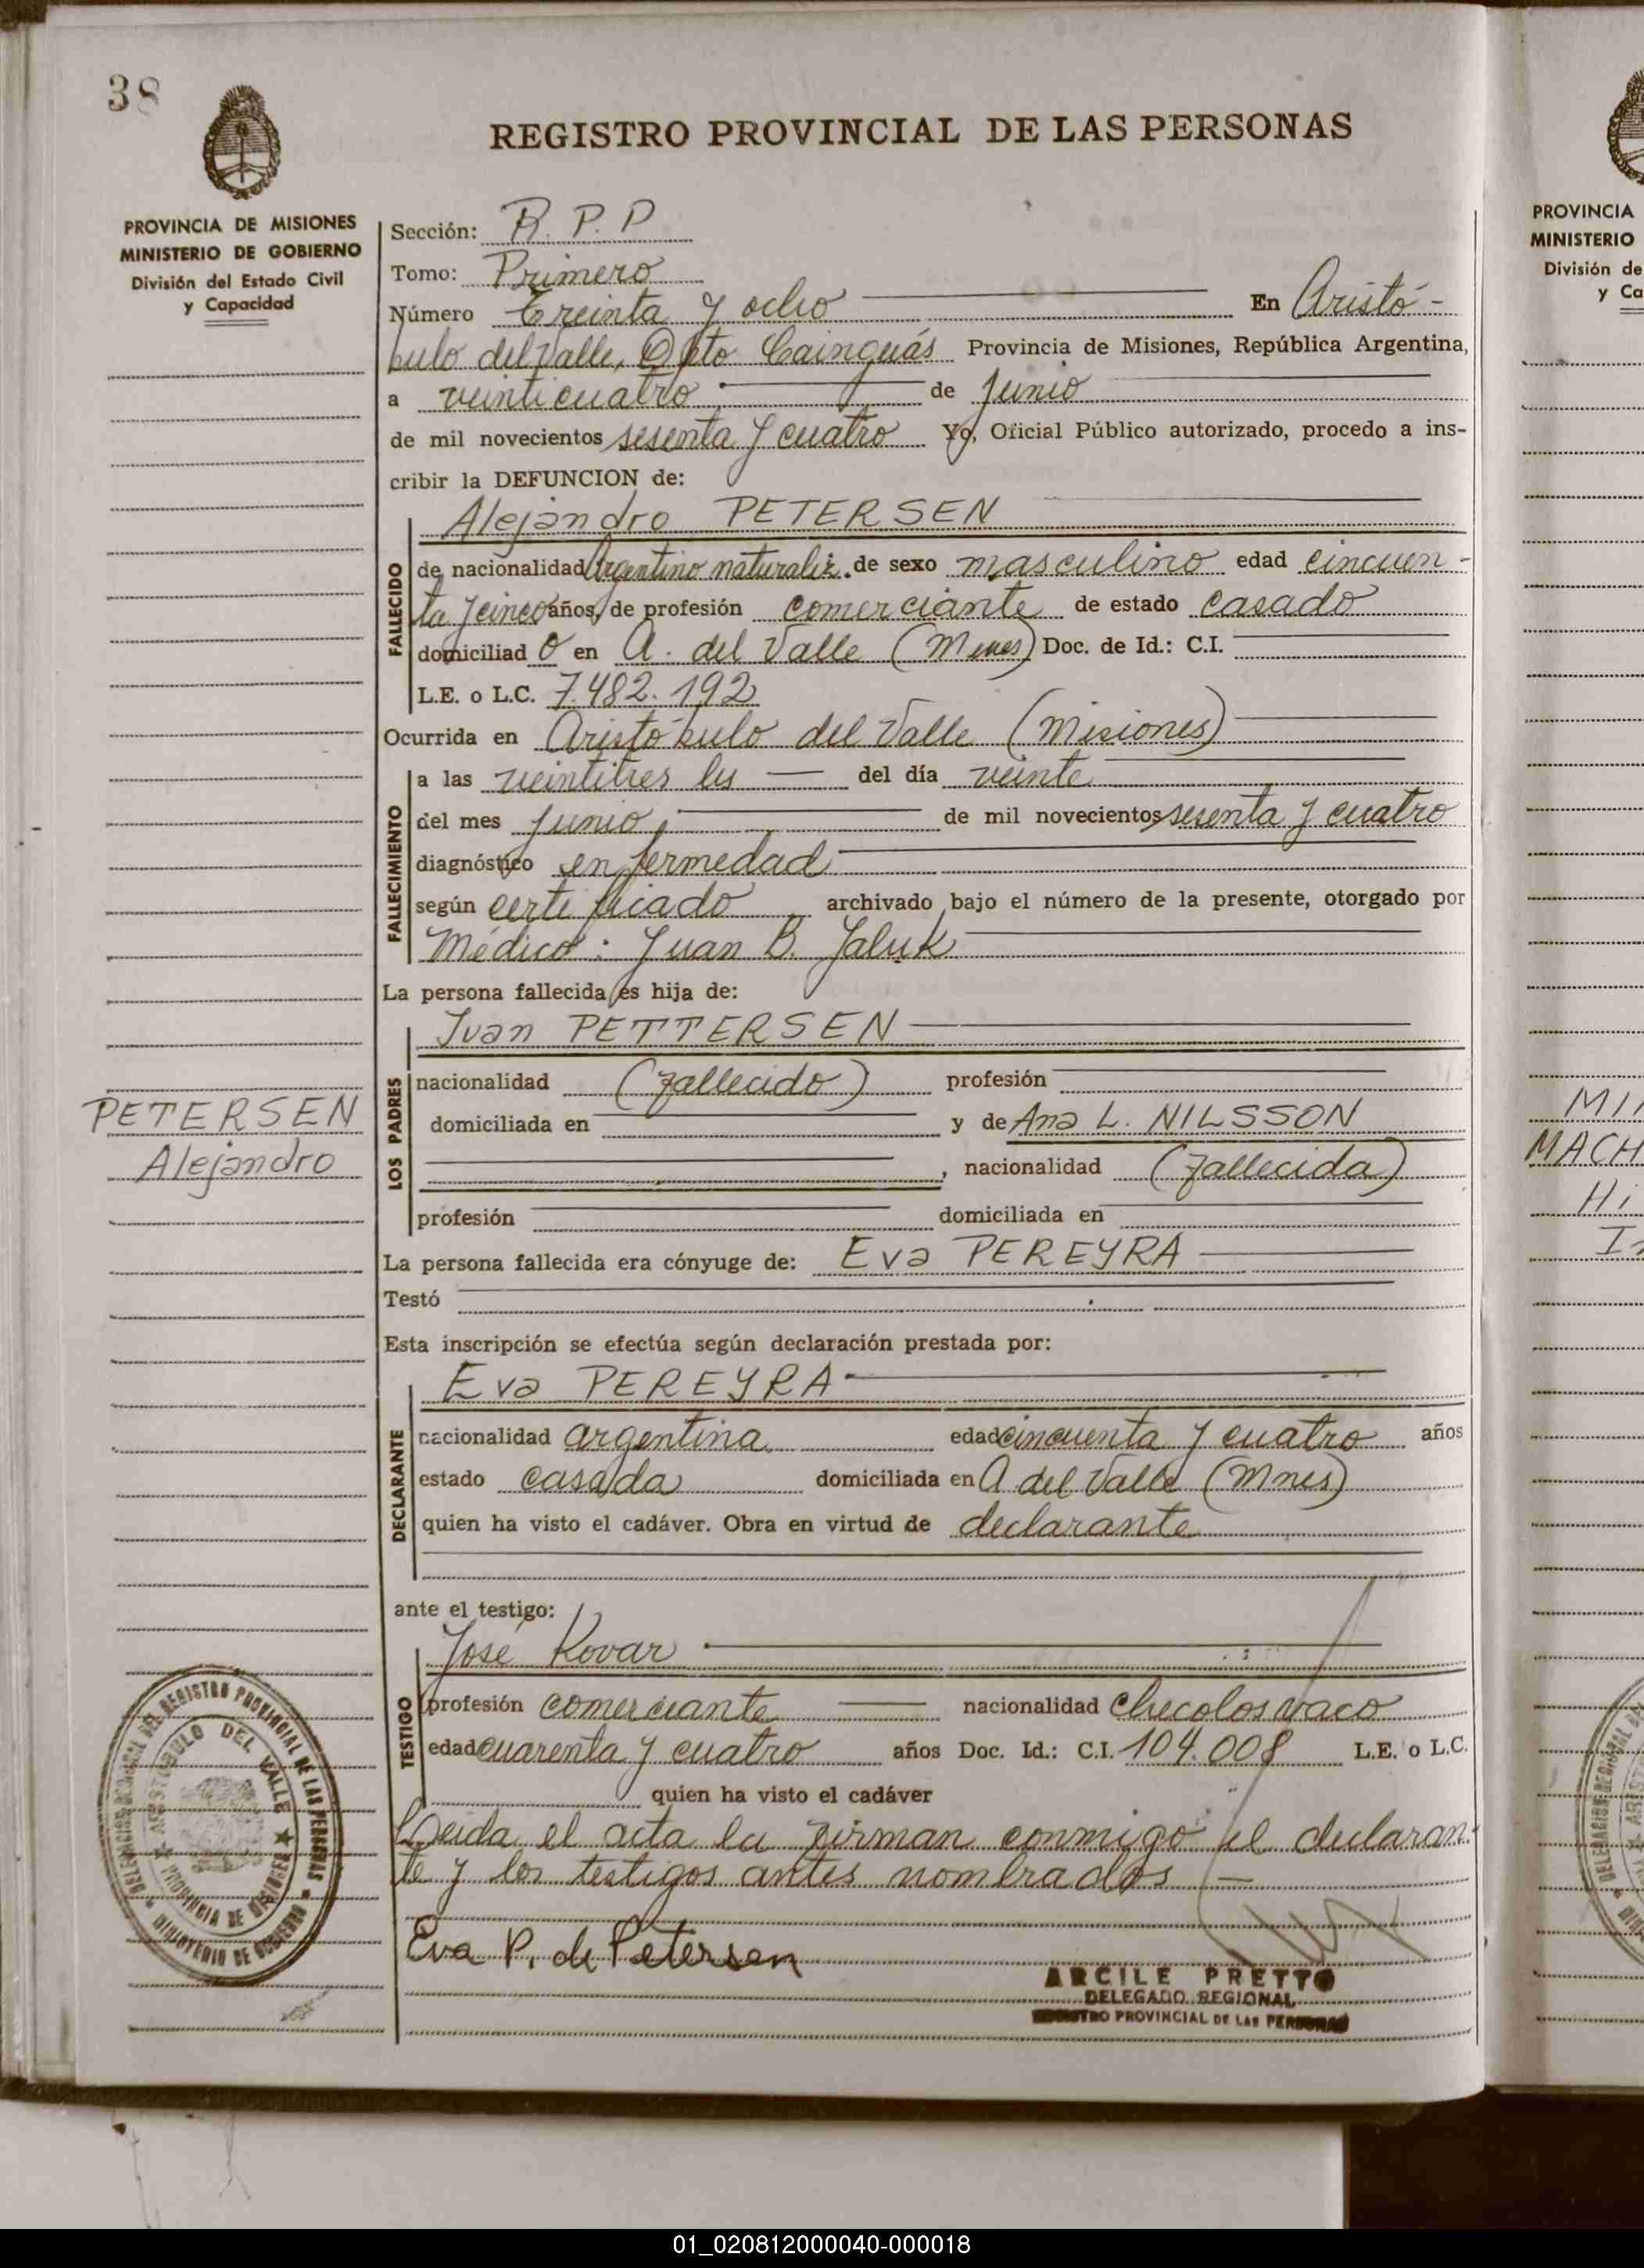 38
REGISTRO PROVINCIAL DE LAS PERSONAS
PROVINCIA DE MISIONES
MINISTERIO DE GOBIERNO
División del Estado Civil
y Capacidad
Sección: R. P. P
Tomo: Primero
Número Treinta y ocho En Aristó-
bulo del Valle, Dpto Cainguás Provincia de Misiones, República Argentina,
a veinticuatro de Junio
de mil novecientos sesenta y cuatro Yo, Oficial Público autorizado, procedo a ins-
cribir la DEFUNCION de:
Alejandro PETERSEN
FALLECIDO
de nacionalidad Argentino naturaliz. de sexo masculino edad cincuen-
ta y cinco años, de profesión comerciante de estado casado
domiciliad o en A. del Valle (Mnes) Doc. de Id.: C.I.
L.E. o L.C. 7.482.192
Ocurrida en Aristóbulo del Valle (Misiones)
FALLECIMIENTO
a las veintitres hs del día veinte
del mes Junio de mil novecientos sesenta y cuatro
diagnóstico enfermedad
según certificado archivado bajo el número de la presente, otorgado por
Médico: Juan B. Jaluk
La persona fallecida es hija de:
Juan PETTERSEN
LOS PADRES
nacionalidad (fallecido) profesión
domiciliada en y de Ana L. NILSSON
, nacionalidad (fallecida)
profesión domiciliada en
PETERSEN
Alejandro
La persona fallecida era cónyuge de: Eva PEREYRA
Testó
Esta inscripción se efectúa según declaración prestada por:
Eva PEREYRA
DECLARANTE
nacionalidad argentina edad cincuenta y cuatro años
estado casada domiciliada en A del Valle (Mnes)
quien ha visto el cadáver. Obra en virtud de declarante
ante el testigo:
José Kovar
TESTIGO
profesión comerciante nacionalidad checoloslovaco
edad cuarenta y cuatro años Doc. Id.: C.I. 104.008 L.E. o L.C.
quien ha visto el cadáver
Leida el acta la firman conmigo el declaran-
te y los testigos antes nombrados
Eva P. de Petersen
ARCILE PRETTO
DELEGADO REGIONAL
REGISTRO PROVINCIAL DE LAS PERSONAS
DELEGACION REGIONAL DEL REGISTRO PROVINCIAL DE LAS PERSONAS
MINISTERIO DE GOBIERNO
ARISTOBULO DEL VALLE
PROVINCIA DE MISIONES
PROVINCIA
MINISTERIO
División de
y Ca
MACH
Hi
01_020812000040-000018